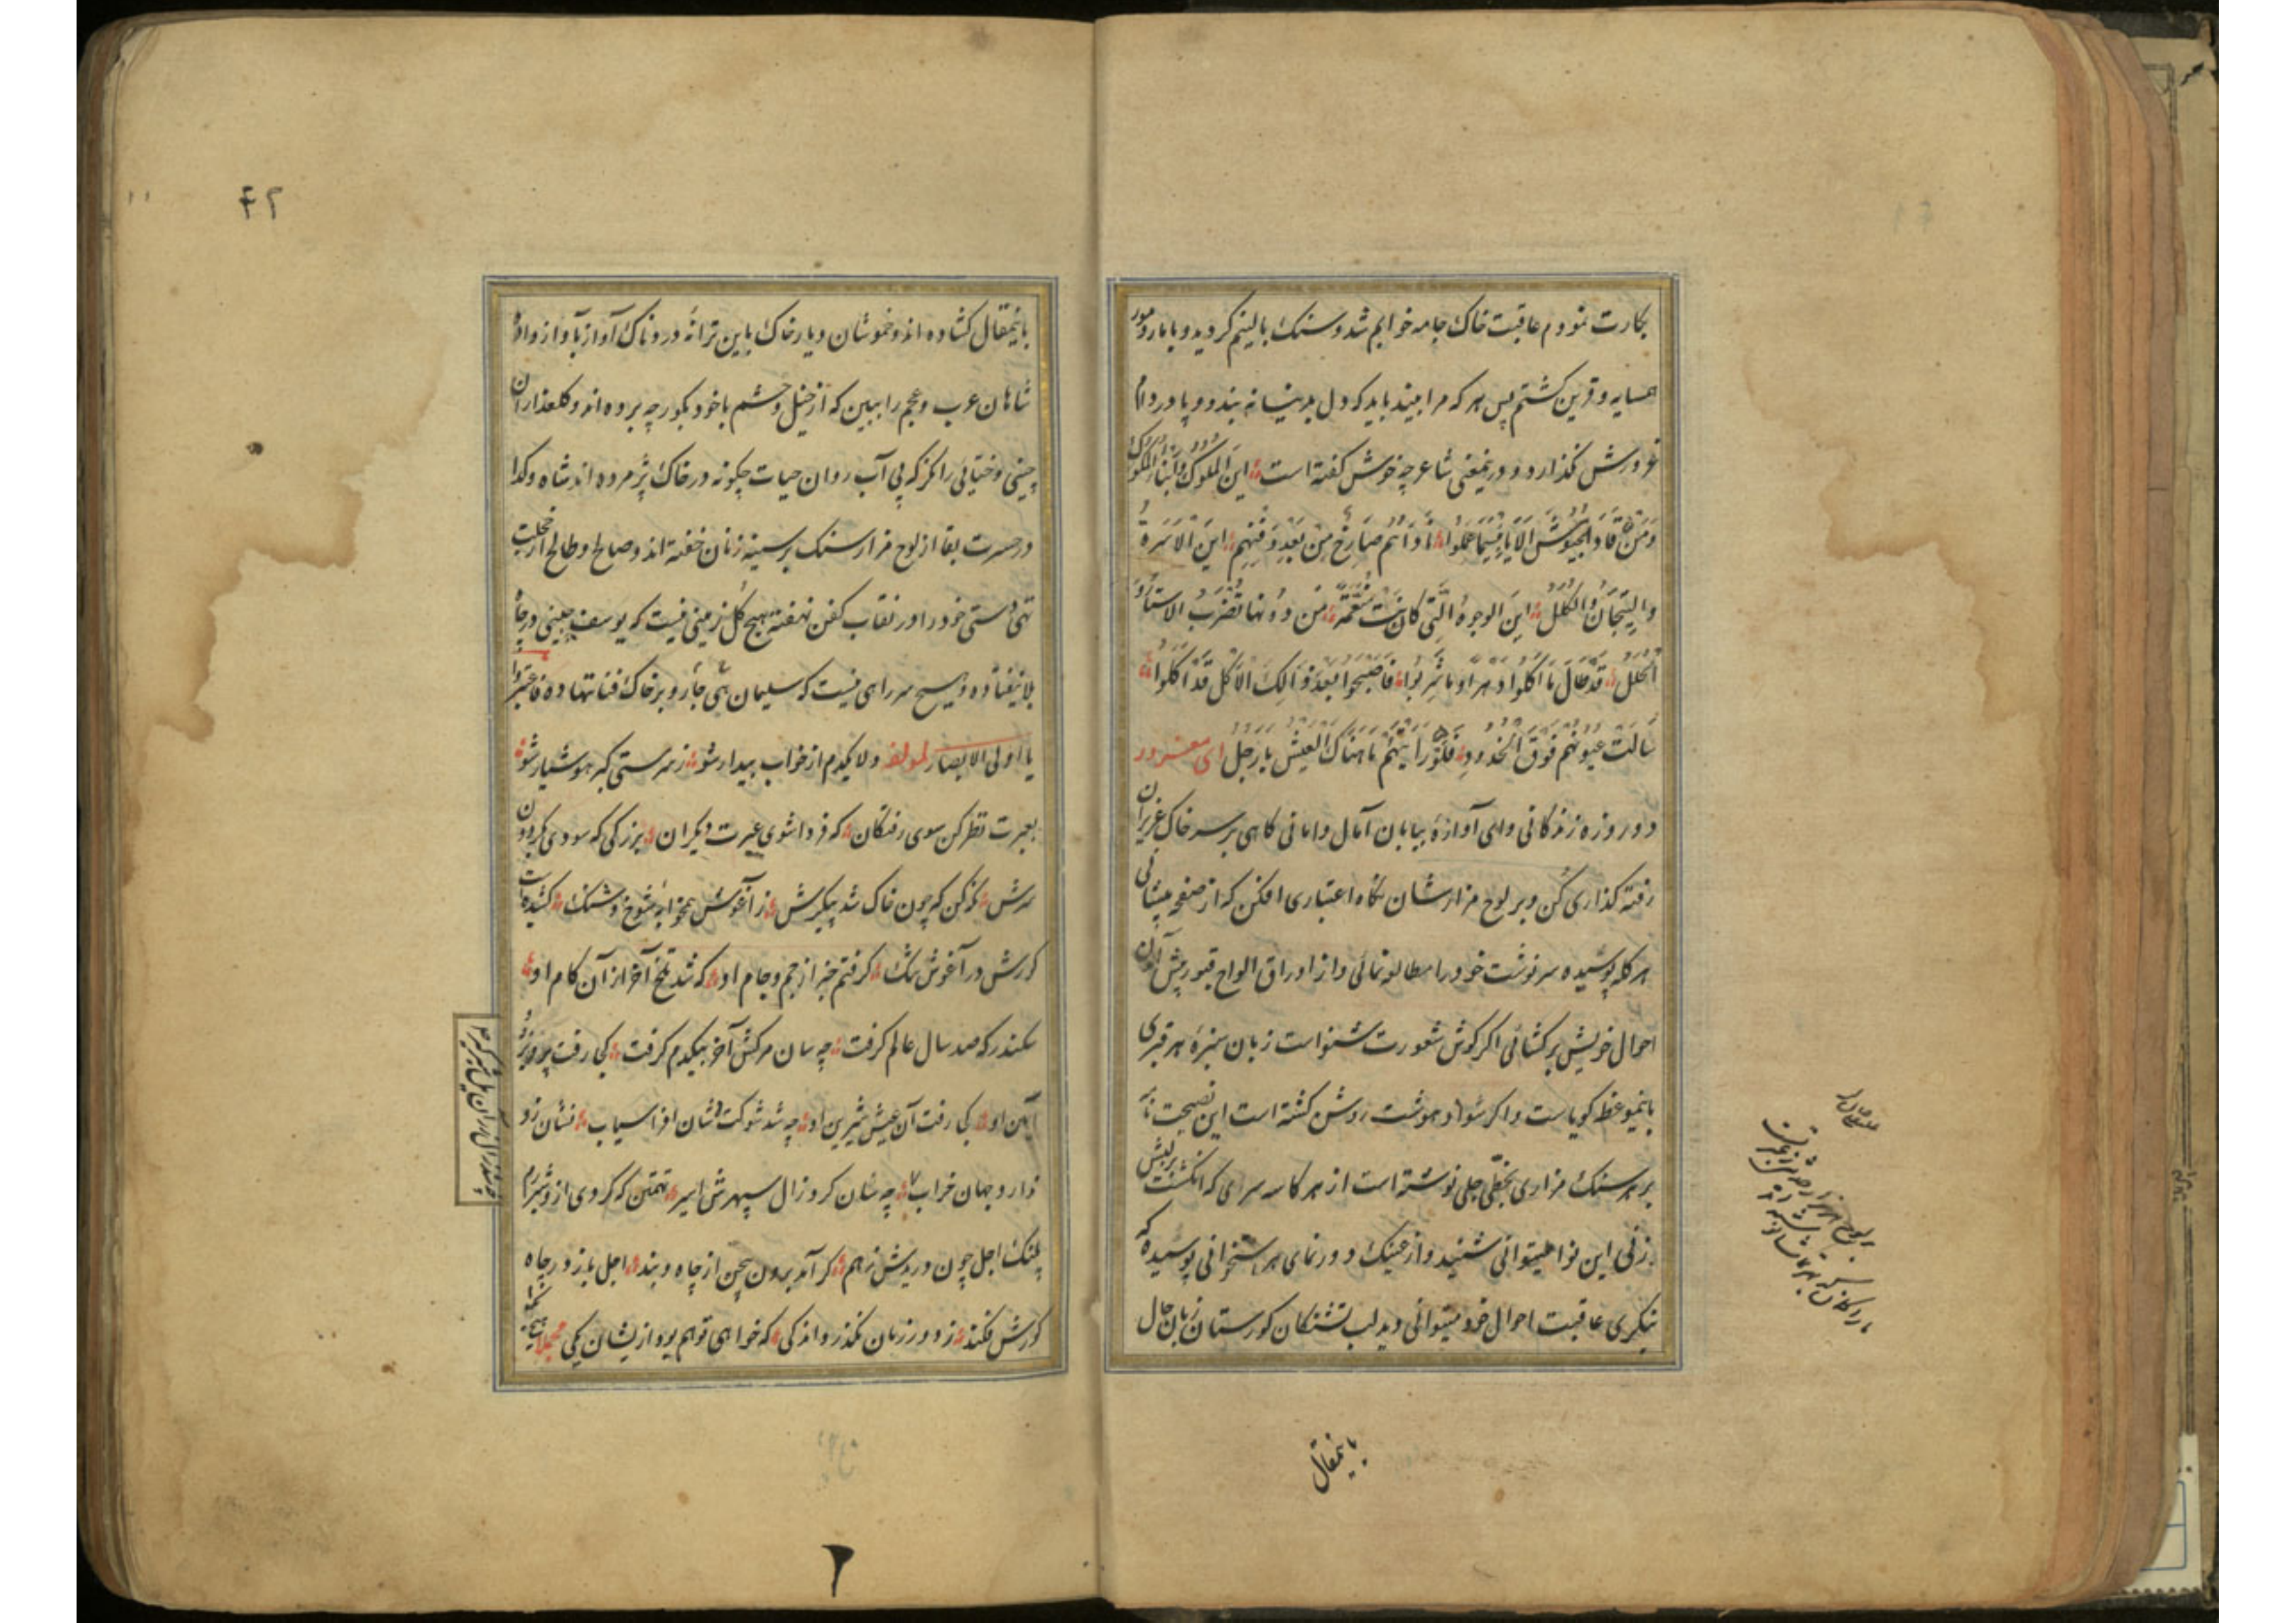 بکارت نمودم عاقبت خاک جامه خوابم شد و سنک بالینم کردید و با مار و مور
همسایه و قرین کشتم پس هر که مرا بیند باید که دل بدنیا نه بندد و پا در دام
غرورش نکذارد و درینمعنی شاعر چه خوش کفته است این الملوک و ابناء الملوک
وَمَن قادَ الجیوش الا یا بئسما عملوا ناداهم صارخ مِن بعد دفنهم این الاسرة
والتیجان والکلل این الوجوه التی کانت منعّمة من دونها تضرب الاستار و
الکلل قد طال ما اکلوا دهراً و ما شربوا فاصبحوا بعد ذالک الاکل قد اکلوا
سالت عیونهم فوق الخدود فلو رأیتهم ما هناک العیش یا رجل ای مغرور
دو روزه زندکانی وای آوازهٔ بیابان آمال و امانی کاهی بر سر خاک عزیزان
رفته کذاری کن و بر لوح مزارشان نکاه اعتباری افکن که از صفحهٔ پیشانی
هر کله پوسیده سرنوشت خود را مطالعه نمائی و از اوراق الواح قبور پیش آمدن
احوال خویش برکشائی اکر کوش شعورت شنواست زبان سبزهٔ هر قبری
باینموعظه کویاست و اکر سواد هوشت روشن کشته است این نصیحت نامه
بر هر سنک مزاری بخطّی جلی نوشته است از هر کاسه سری که انکشت برلبش
زنی این نوا میتوانی شنید و از عینک دورنمای هر استخوانی پوسیده که
بنکری عاقبت احوال خود میتوانی دید لب تشنکان کورستان زبان حال
باینمقال
باینمقال کشاده اند و خموشان دیار خاک باین ترانهٔ دردناک آواز بآواز داده
شاهان عرب و عجم را ببین که از خیل و حشم با خود بکور چه برده اند و کلعذاران
چینی و ختائی را نکر که بی آب روان حیات چکونه در خاک پژمرده اند شاه و کدا
در حسرت بقا از لوح مزار سنک بر سینه زنان خفته اند و صالح و طالح از خجلت
تهی دستی خود را در نقاب کفن نهفته هیچ کل زمینی نیست که یوسف جبینی در چاه
بلا نیفتاده و هیچ سر راهی نیست که سلیمان جاهی رو بر خاک فنا ننهاده فاعتبروا
یا اولی الابصار لمولفه دلا یکدم از خواب بیدار شو ز سرمستی کبر هوشیار شو
بعبرت نظر کن سوی رفتکان که فردا شوی عبرت دیکران بزرکی که سودی بکردون
سرش نکه کن که چون خاک شد پیکرش ز آغوش همخوابهٔ شوخ و شنک کشیده است
کورش در آغوش تنک کرفتم خبر از جم و جام او که شد تلخ آخر از آن کام او
سکندر که صد سال عالم کرفت چه سان مرکش آخر بیکدم کرفت کجا رفت پرویز و
آیین او کجا رفت آن عیش شیرین او چه شد شوکت و شان افراسیاب نشان زو
ندارد جهان خراب چه شان کرد زال سپهرش اسیر تهمتن که کردی ازو شیر رم
پلنک اجل چون دریدش ز هم کر آمد برون بیجن از چاه و بند اجل باز در چاه
کورش فکند ز دور زمان نکذرد اندکی که خواهی تو هم بود ازیشان یکی
۴۲
۲